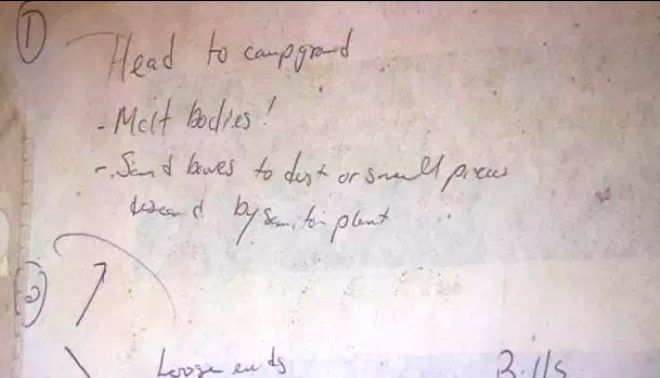 1
Head to campground
- Melt bodies!
- Sand bones to dust or small pieces
discard by sanitoin plant
2
Loose ends Bills